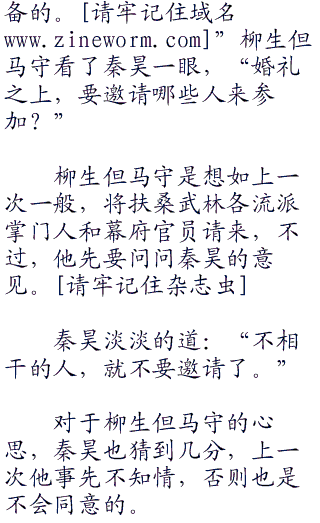 备的。[请牢记住域名
www.zineworm.com]”柳生但
马守看了秦昊一眼，“婚礼
之上，要邀请哪些人来参
加？”
柳生但马守是想如上一
次一般，将扶桑武林各流派
掌门人和幕府官员请来，不
过，他先要问问秦昊的意
见。[请牢记住杂志虫]
秦昊淡淡的道：“不相
干的人，就不要邀请了。”
对于柳生但马守的心
思，秦昊也猜到几分，上一
次他事先不知情，否则也是
不会同意的。